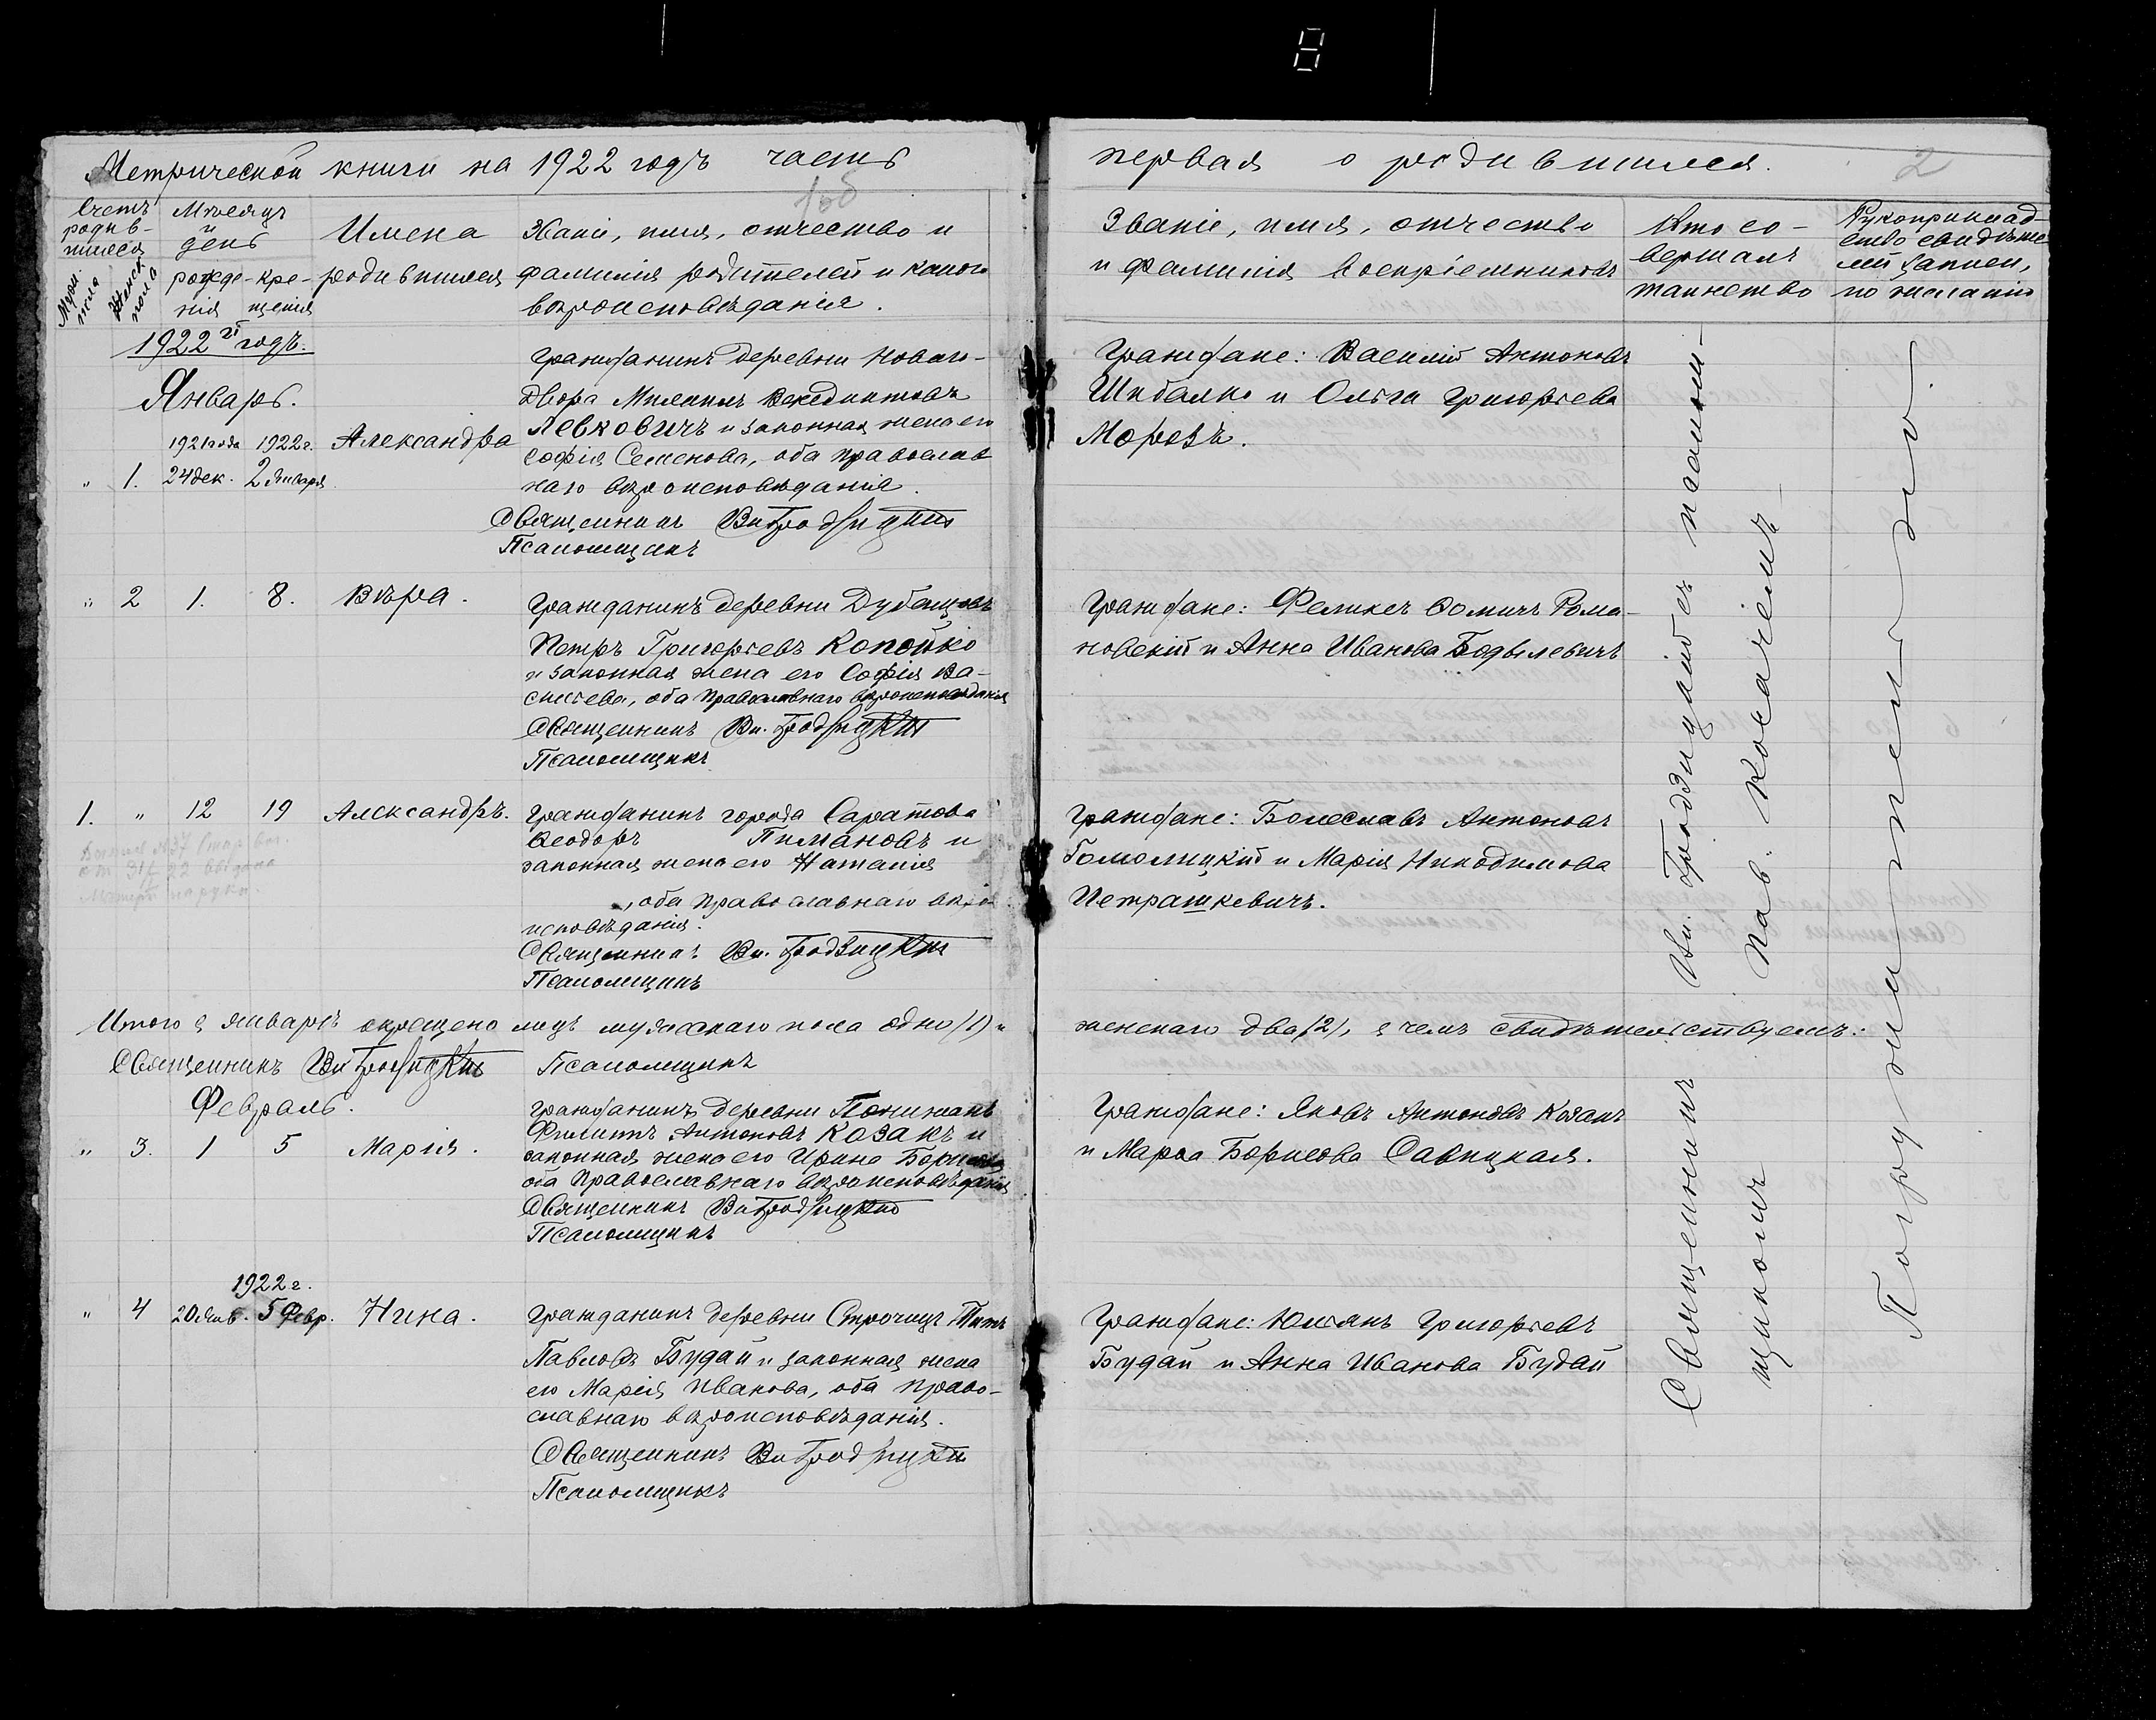 Метрической книги на 1922 годъ часть
первая о родившихся.
2
Счетъ родив-шихся
Мужеск. пола
Женск. пола
Мѣсяцъ и день
рожде-нія
кре-щенія
Имена
родившихся
Званіе, имя, отчество и
фамилія родителей и какого
вѣроисповѣданія.
Званіе, имя, отчество
и фамилія воспріемниковъ
Кто со-
вершалъ
таинство
Рукоприклад-
ство свидѣте-
лей записи,
по желанію
1922 годъ.
Январь.
1921 года 1922 г. Александра
" 1. 24 дек. 2 Января
Гражданинъ деревни Новаго-
Двора Венедиктовъ
Левковичъ и законная жена его
Софія Семенова, оба православ
наго вѣроисповѣданія.
Священникъ Ви. Гродзицкій
Псаломщикъ
Граждане: Василій Антоновъ
Шибалко и Ольга Григорьева
Морозъ.
" 2 1. 8. Вѣра.
Гражданинъ деревни Дубенцовъ
Петръ Григорьевъ Копойко
и законная жена его Софія Ва-
сильева, оба православнаго вѣроисповѣданія
Священникъ Ви. Гродзицкій
Псаломщикъ
Граждане: Феликсъ Ѳомичъ Рома-
новскій и Анна Иванова Бодылевичъ
1. " 12 19 Александръ.
37
22 выдана
на руки.
Гражданинъ города Саратова
Ѳеодоръ Пимановъ и
законная жена его Наталія
, оба православнаго вѣро
исповѣданія.
Священникъ Ви. Гродзицкій
Псаломщикъ
Граждане: Болеславъ Антоновъ
Гомолицкій и Марія Никодимова
Петрашкевичъ.
Итого въ январѣ окрещено лицъ мужескаго пола одно (1) и
женскаго два (2), въ чемъ свидѣтельствуемъ:
Священникъ Ви. Гродзицкій Псаломщикъ
Февраль.
" 3. 1 5 Марія.
Гражданинъ деревни Понижанъ
Филиппъ Антоновъ Козакъ и
законная жена его Ирина Борисова
оба православнаго вѣроисповѣданія
Священникъ Ви. Гродзицкій
Псаломщикъ
Граждане: Яковъ Антоновъ Козакъ
и Марѳа Борисова Савицкая.
1922 г.
" 4 20 Янв. 5 Февр. Нина.
Гражданинъ деревни Строчицъ Титъ
Павловъ Будай и законная жена
его Марія Иванова, оба право-
славнаго вѣроисповѣданія.
Священникъ Ви. Гродзицкій
Псаломщикъ
Граждане: Юліанъ Григорьевъ
Будай и Анна Иванова Будай
Священникъ Ви. Гродзицкій съ псалом-
щикомъ Пав. Косачемъ